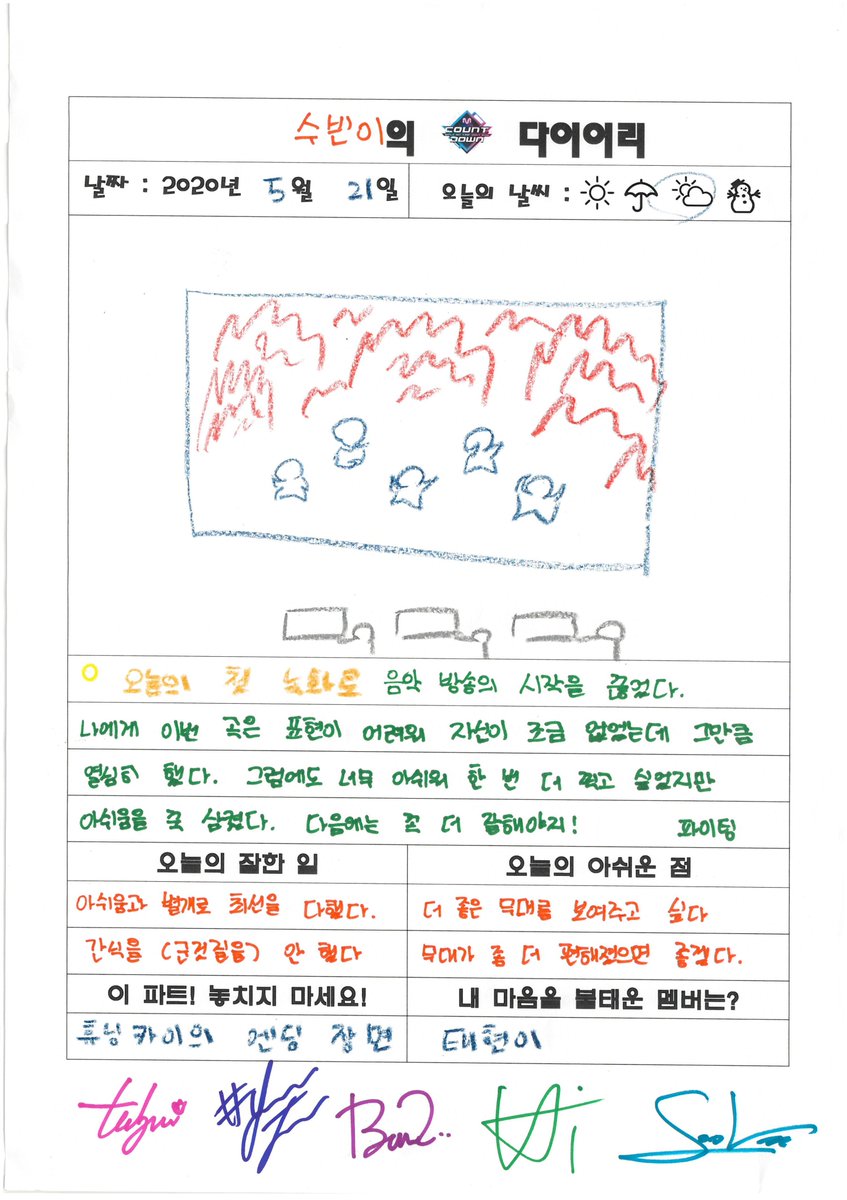 수빈이의 M COUNT DOWN 다이어리
날짜 : 2020년 5월 21일 오늘의 날씨 :
오늘의 첫 녹화로 음악 방송의 시작을 끊었다.
나에게 이번 곡은 표현이 어려워 자신이 조금 없었는데 그만큼
열심히 했다. 그럼에도 너무 아쉬워 한 번 더 찍고 싶었지만
아쉬움을 꾹 삼켰다. 다음에는 좀 더 잘해야지! 파이팅
오늘의 잘한 일 오늘의 아쉬운 점
아쉬움과 별개로 최선을 다했다. 더 좋은 무대를 보여주고 싶다
간식을 (군것질을) 안 했다 무대가 좀 더 편해졌으면 좋겠다.
이 파트! 놓치지 마세요! 내 마음을 불태운 멤버는?
휴닝카이의 엔딩 장면 태현이